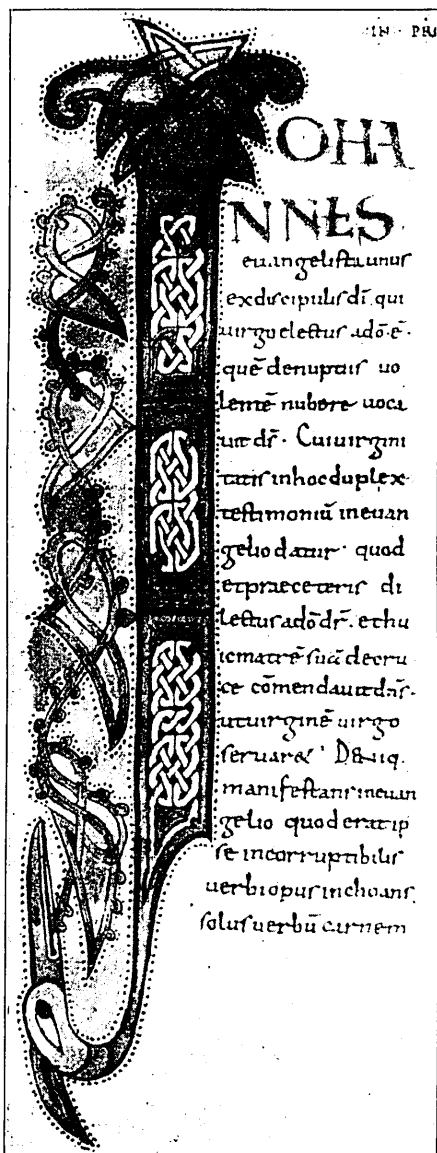 IN · PRI
OHA
NNES
euangelista unus
ex discipulis dī. qui
uirgo electus adō ē·
quē denuptiis uo
lentē nubere uoca
uit dr̄· Cui uirgini
tatis in hoc duplex
testimoniū in euan
gelio datur· quod
et prae ceteris di
lectus adō dr̄. et hu
ic matrē suā de cru
ce cōmendauit dn̄s·
ut uirginē uirgo
seruar&· Deniq.
manifestans in euan
gelio quod erat ip
se incorruptibilis
uerbi opus inchoans
solus uerbū carnem